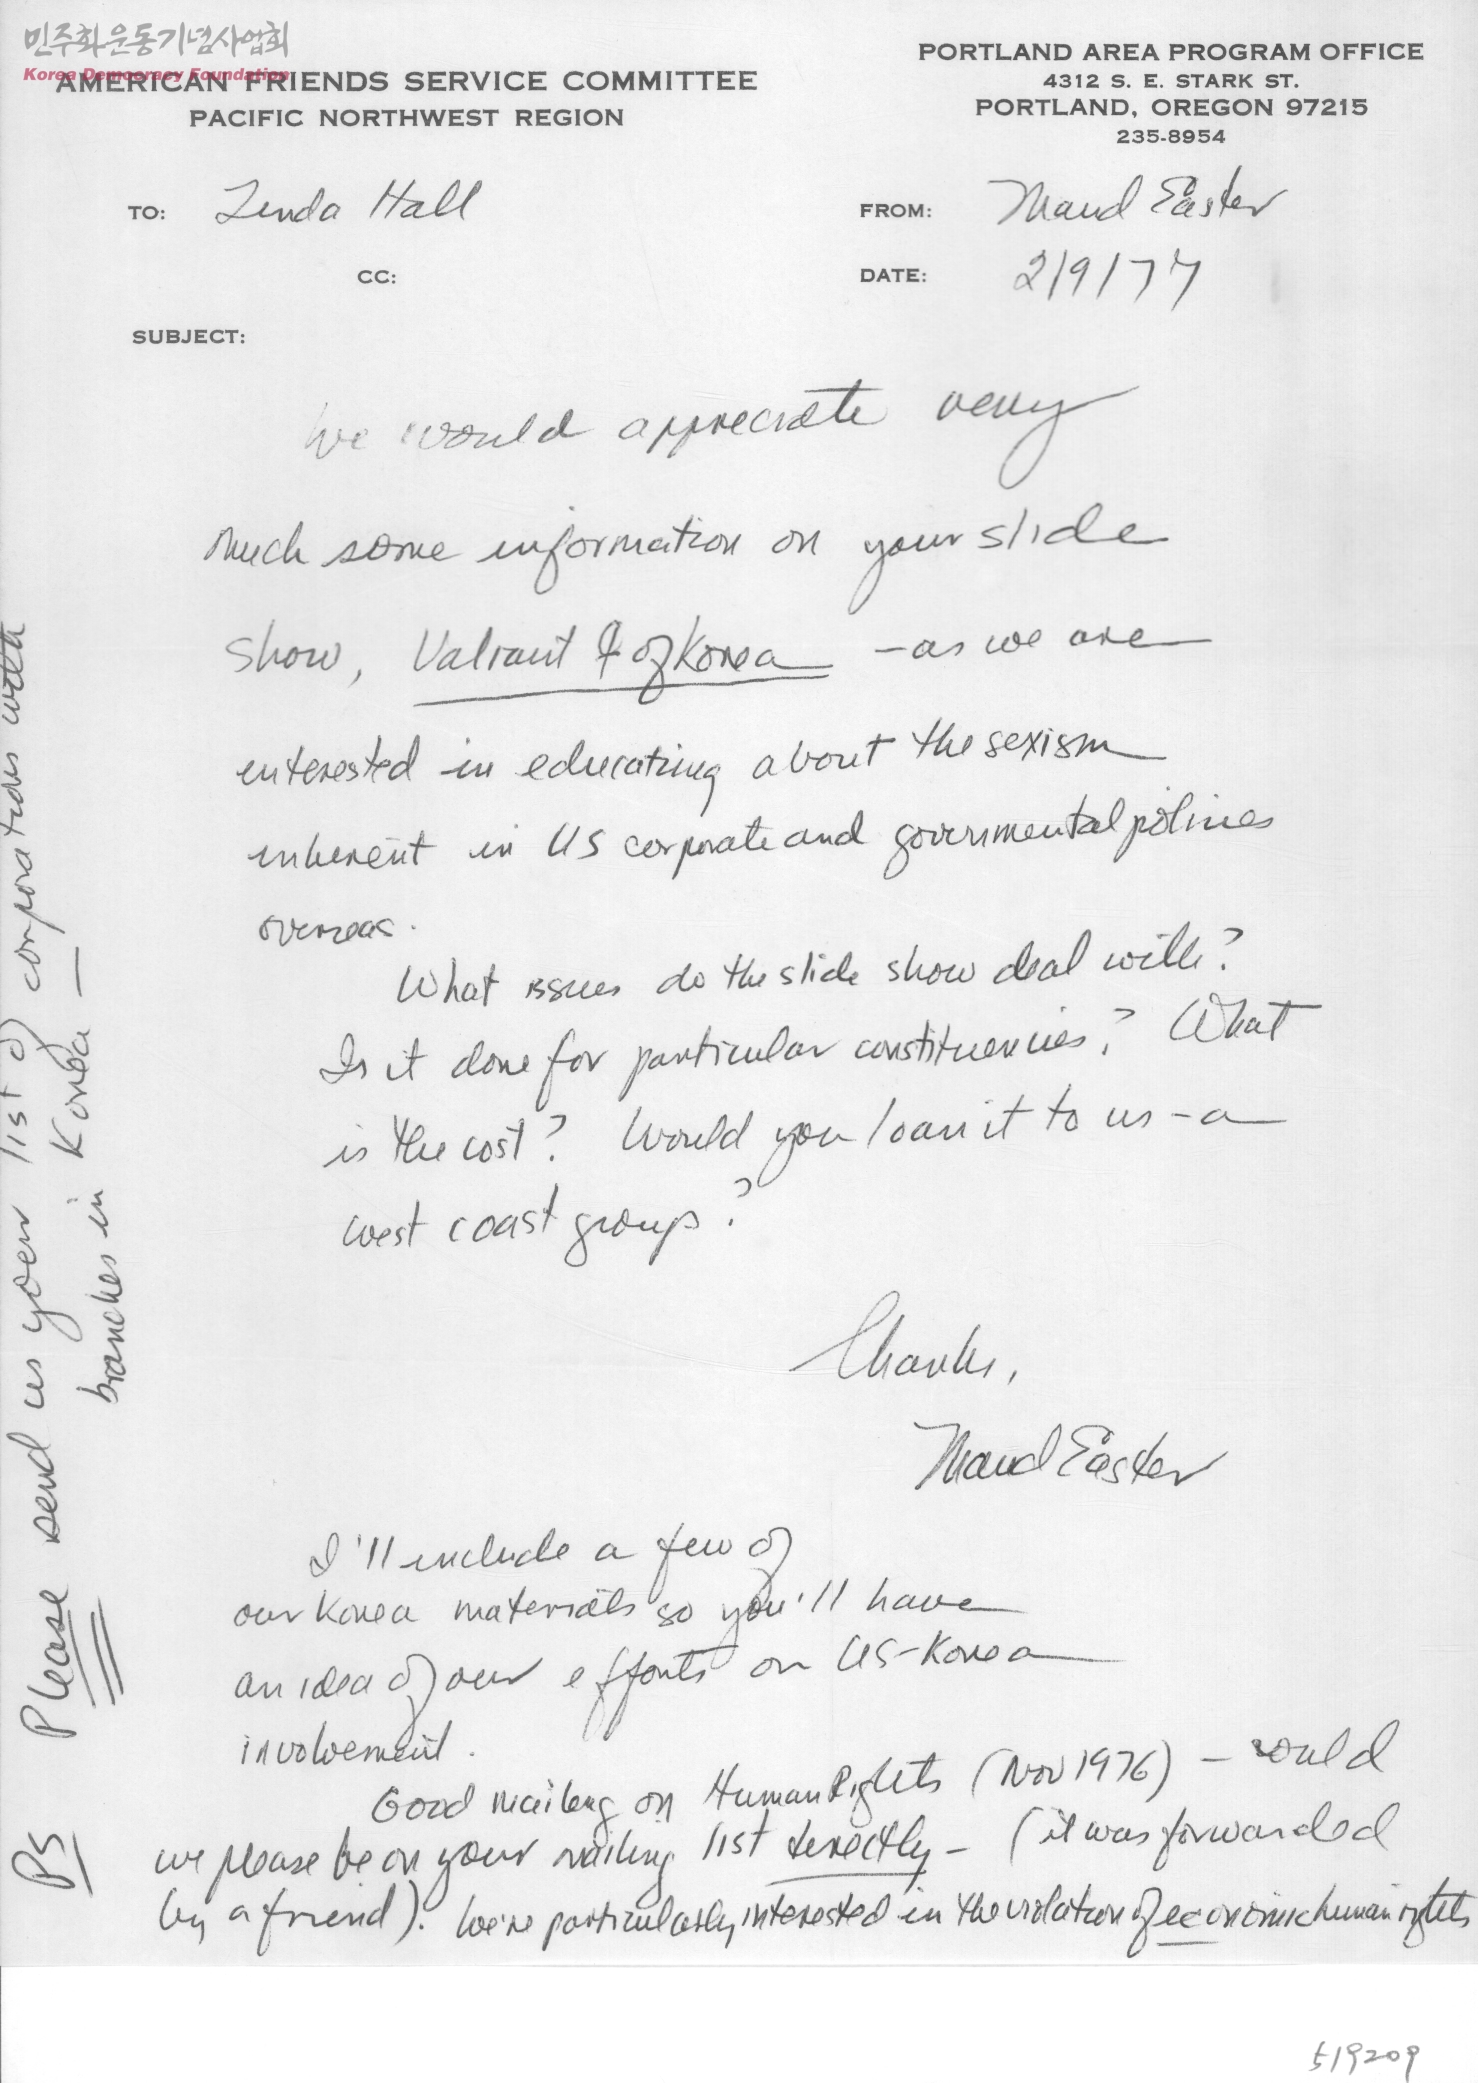 민주화운동기념사업회
Korea Democracy Foundation
AMERICAN FRIENDS SERVICE COMMITTEE
PACIFIC NORTHWEST REGION
PORTLAND AREA PROGRAM OFFICE
4312 S. E. STARK ST.
PORTLAND, OREGON 97215
235-8954
TO: Linda Hall
FROM: Maud Easter
CC:
DATE: 2/9/77
SUBJECT:
We would appreciate very
much some information on your slide
show, Valiant ♀ of Korea - as we are
interested in educating about the sexism
inherent in US corporate and governmental policies
overseas.
What issues do the slide show deal with?
Is it done for particular constituencies? What
is the cost? Would you loan it to us - a
west coast group?
Thanks,
Maud Easter
I'll include a few of
our Korea materials so you'll have
an idea of our efforts on US-Korea
involvement.
Good mailing on Human Rights (Nov 1976) - could
we please be on your mailing list directly - (it was forwarded
by a friend). We're particularly interested in the violation of economic human rights
PS Please send us your list of corporations with
branches in Korea —
519209